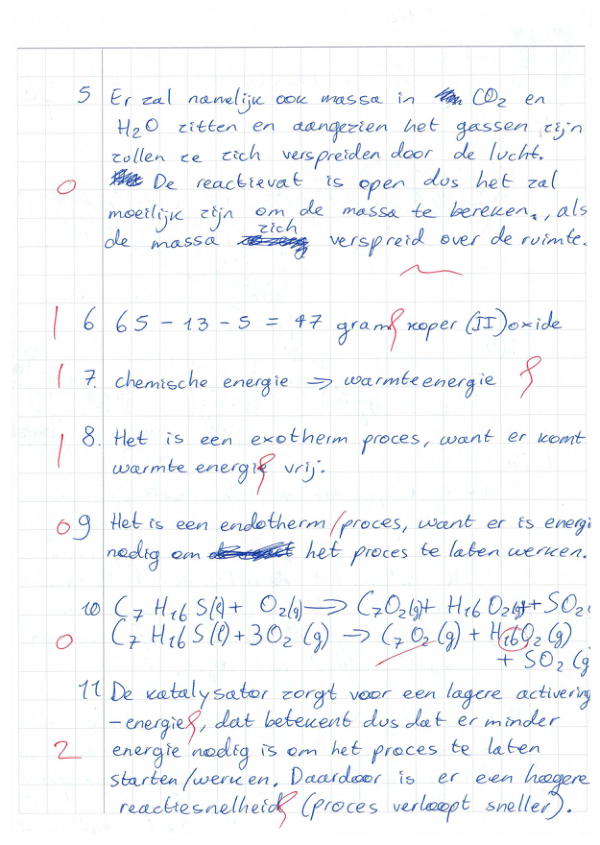 5 Er zal namelijk ook massa in CO₂ en
H₂O zitten en aangezien het gassen zijn
zullen ze zich verspreiden door de lucht.
0 De reactievat is open dus het zal
moeilijk zijn om de massa te bereken., als
zich
de massa verspreid over de ruimte.
1 6 65 - 13 - 5 = 47 gram koper (II) oxide
1 7. chemische energie => warmteenergie
1 8. Het is een exotherm proces, want er komt
warmte energie vrij.
0 9 Het is een endotherm/proces, want er is energi
nodig om het proces te laten werken.
10 C₇H₁₆S(l) + O₂(g) → C₇O₂(g) + H₁₆O₂(g) + SO₂(
0 C₇H₁₆S(l) + 3O₂(g) → C₇O₂(g) + H₁₆O₂(g)
+ SO₂(g
11 De katalysator zorgt voor een lagere activering
-energie, dat betekent dus dat er minder
2 energie nodig is om het proces te laten
starten/werken. Daardoor is er een hogere
reactiesnelheid (proces verloopt sneller).